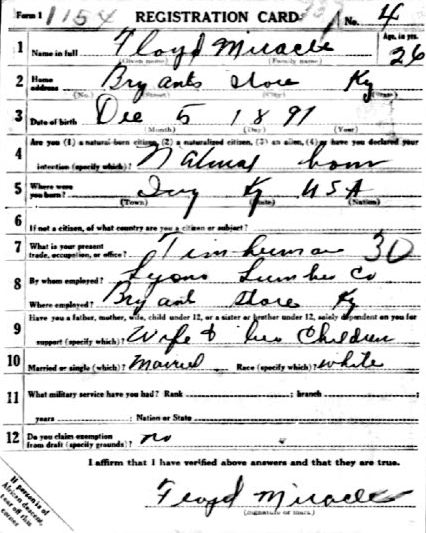 Form 1 1154 REGISTRATION CARD No. 4
1 Name in full Floyd Miracle Age, in yrs. 26
(Given name) (Family name)
2 Home address Bryants Store Ky
(No.) (Street) (City) (State)
3 Date of birth Dec 5 1891
(Month) (Day) (Year)
Are you (1) a natural-born citizen, (2) a naturalized citizen, (3) an alien, (4) or have you declared your
4 intention (specify which)? Natural born
5 Where were you born? Ivy Ky USA
(Town) (State) (Nation)
6 If not a citizen, of what country are you a citizen or subject?
7 What is your present trade, occupation, or office? Timberman 30
8 By whom employed? Lyons Lumber Co
Where employed? Bryant Store Ky
Have you a father, mother, wife, child under 12, or a sister or brother under 12, solely dependent on you for
9 support (specify which)? Wife & Children
10 Married or single (which)? Married Race (specify which)? White
11 What military service have you had? Rank ; branch ;
years ; Nation or State
12 Do you claim exemption from draft (specify grounds)? no
I affirm that I have verified above answers and that they are true.
Floyd Miracle
(Signature or mark)
If person is of
African descent,
tear off this
corner